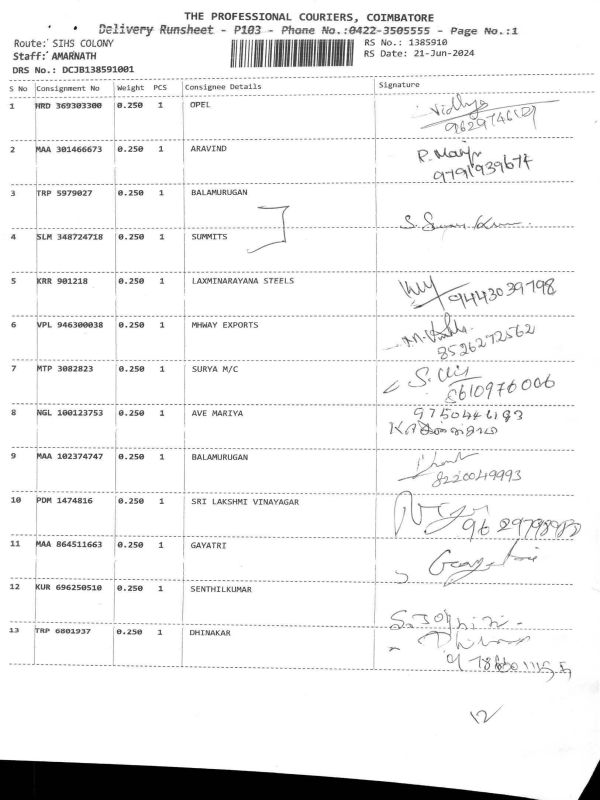 THE PROFESSIONAL COURIERS, COIMBATORE
Delivery Runsheet - P103 - Phone No.:0422-3505555 - Page No.:1
Route: SIHS COLONY RS No.: 1385910
Staff: AMARNATH RS Date: 21-Jun-2024
DRS No.: DCJB138591001
S No Consignment No Weight PCS Consignee Details Signature
1 HRD 369303300 0.250 1 OPEL Vidhya
2 MAA 301466673 0.250 1 ARAVIND
9791939674
3 TRP 5979027 0.250 1 BALAMURUGAN
4 SLM 348724718 0.250 1 SUMMITS
5 KRR 901218 0.250 1 LAXMINARAYANA STEELS 9443039798
6 VPL 946300038 0.250 1 MHWAY EXPORTS
8526272562
7 MTP 3082823 0.250 1 SURYA M/C
8610976006
8 NGL 100123753 0.250 1 AVE MARIYA
9 MAA 102374747 0.250 1 BALAMURUGAN
8220049993
10 PDM 1474816 0.250 1 SRI LAKSHMI VINAYAGAR
11 MAA 864511663 0.250 1 GAYATRI
12 KUR 696250510 0.250 1 SENTHILKUMAR
13 TRP 6801937 0.250 1 DHINAKAR
12